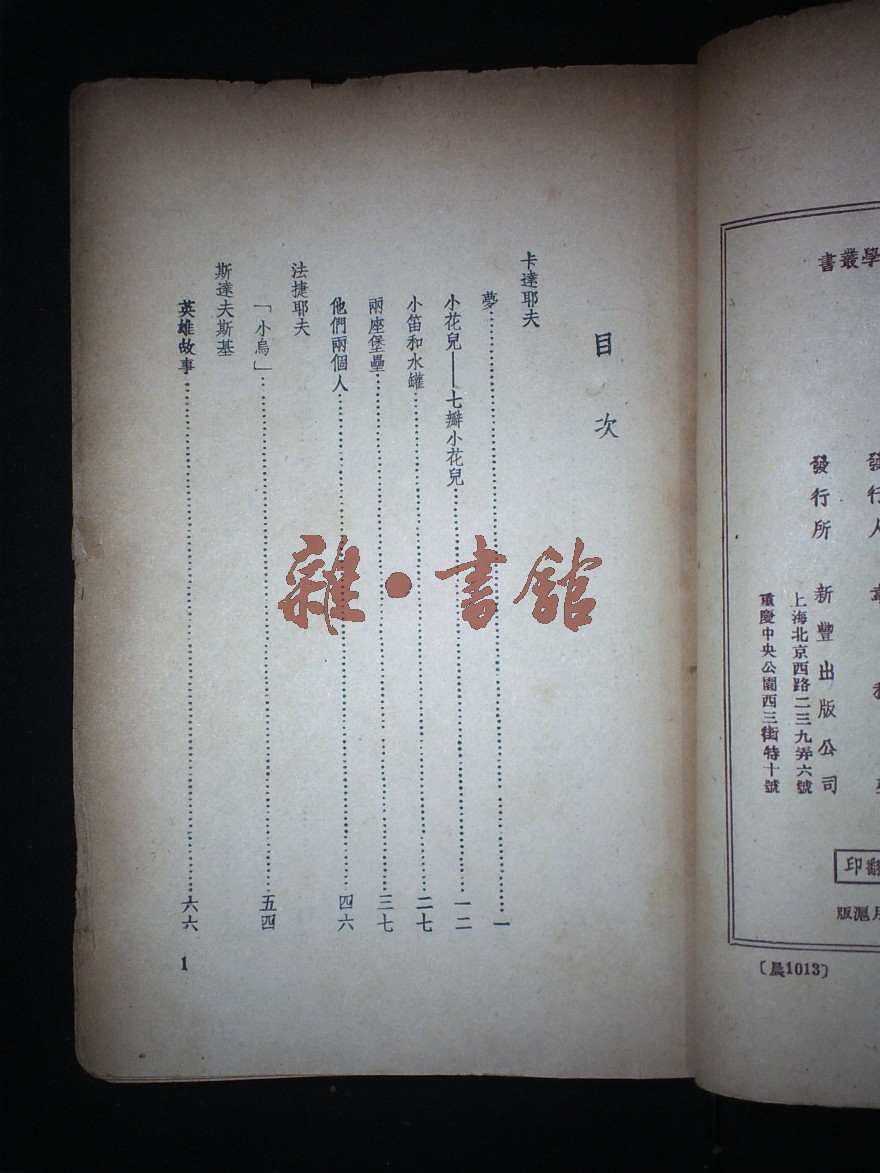 學叢書
發行人
發行所 新豐出版公司
上海北京西路二三九弄六號
重慶中央公園西三街特十號
翻印
滬版
〔晨1013〕
目次
卡達耶夫
夢……一
小花兒——七瓣小花兒……一二
小笛和水罐……二七
兩座堡壘……三七
他們兩個人……四六
法捷耶夫
「小鳥」……五四
斯達夫斯基
英雄故事……六六
1
雜·書館